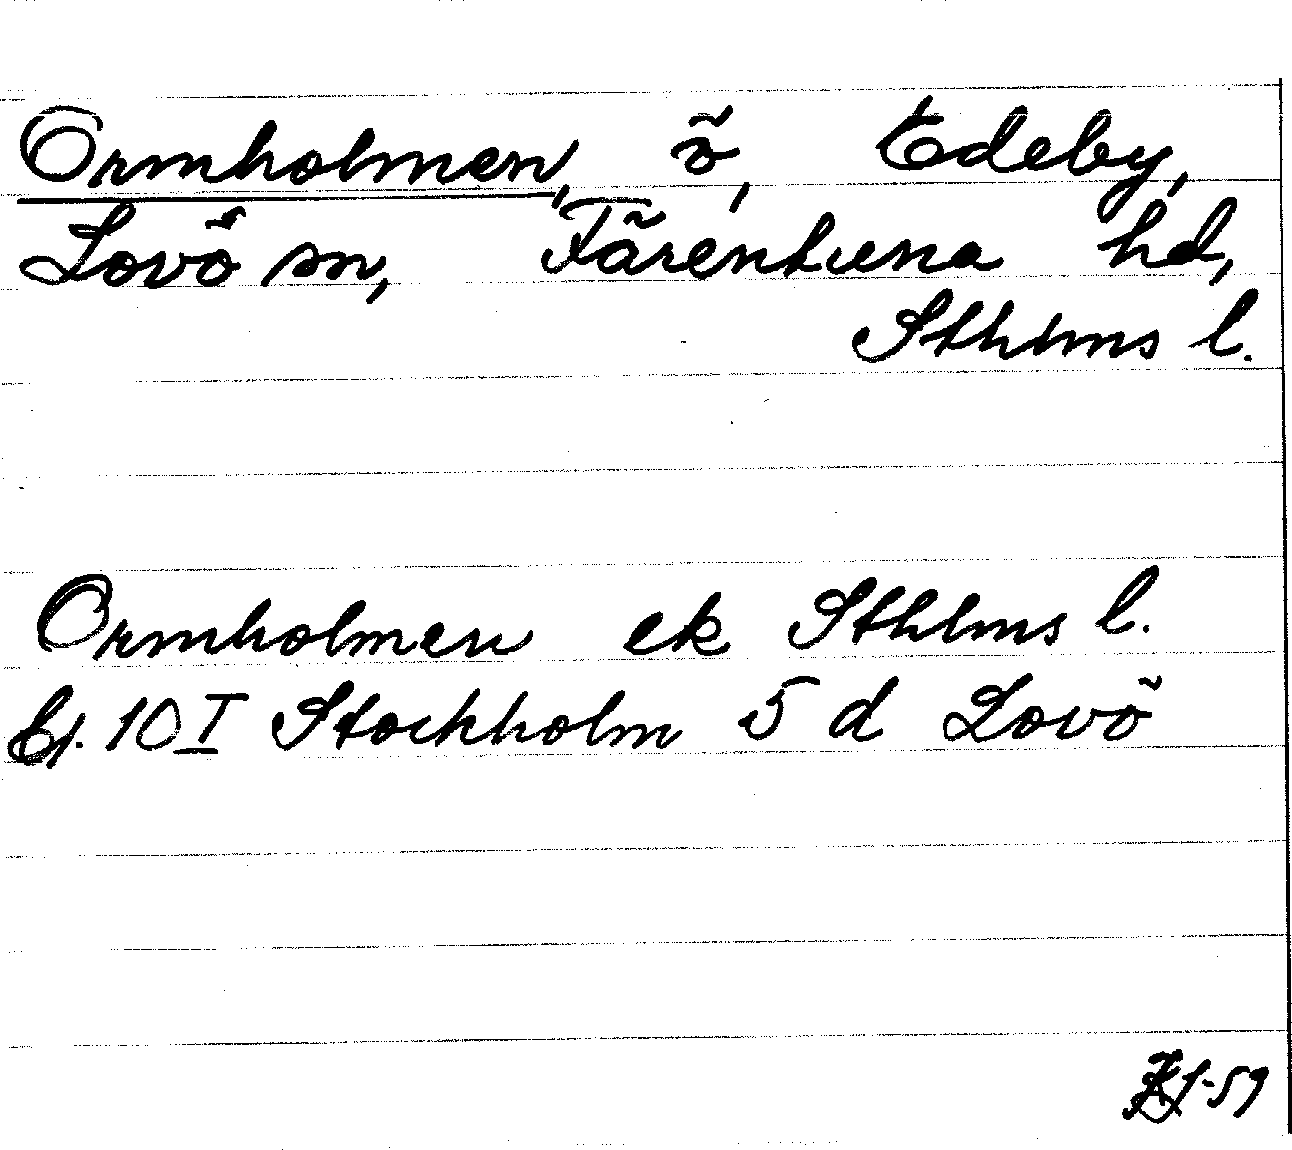 Ormholmen, ö, Edeby,
Lovö sn, Färentuna hd,
Sthlms l.
Ormholmen ek Sthlms l.
bl. 10 I Stockholm 5 d Lovö
-59